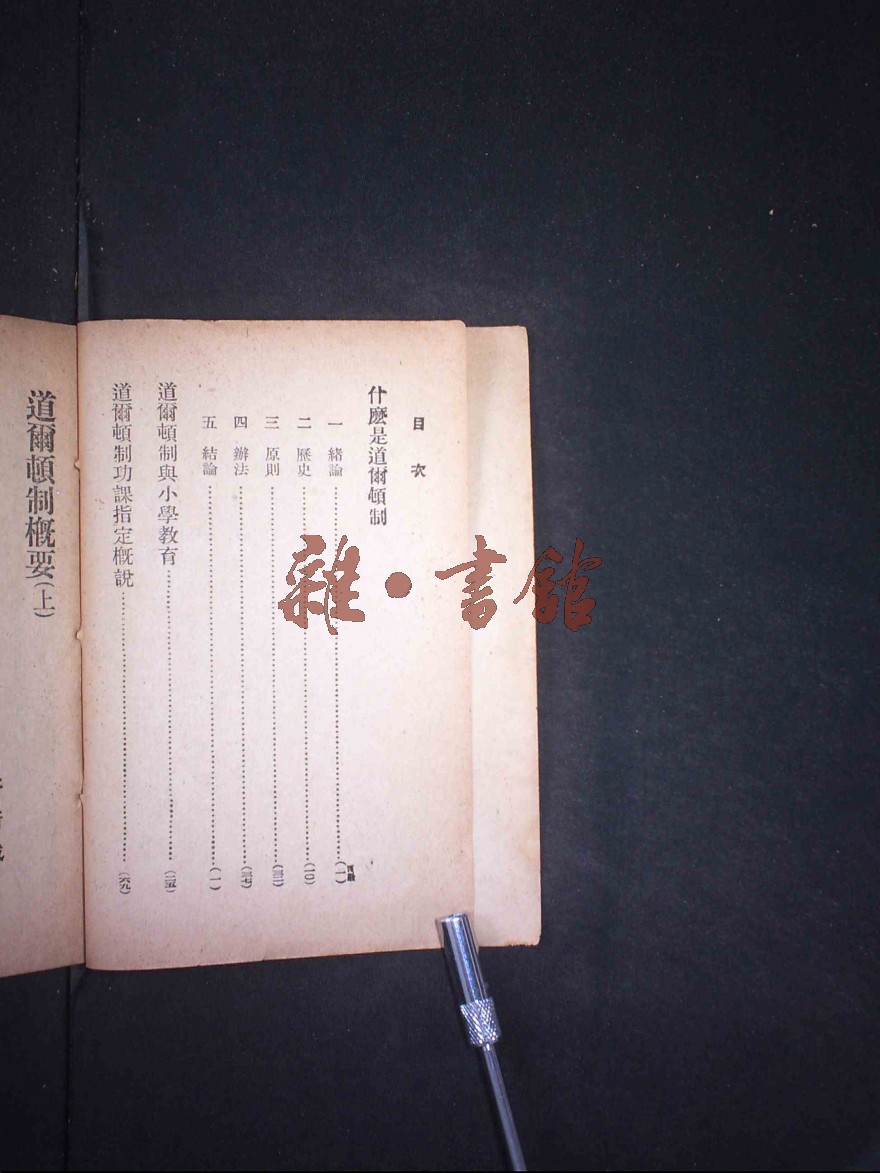 目次
什麽是道爾頓制
頁數
一 緒論……(一)
二 歷史……(一〇)
三 原則……(三一)
四 辦法……(三七)
五 結論……(一)
道爾頓制與小學教育……(二五)
道爾頓制功課指定概說……(六九)
道爾頓制概要(上)
雜·書館